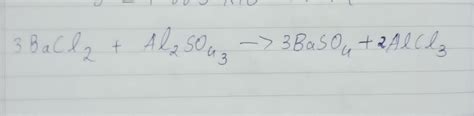 3BaCl₂ + Al₂SO₄₃ → 3BaSO₄ + 2AlCl₃